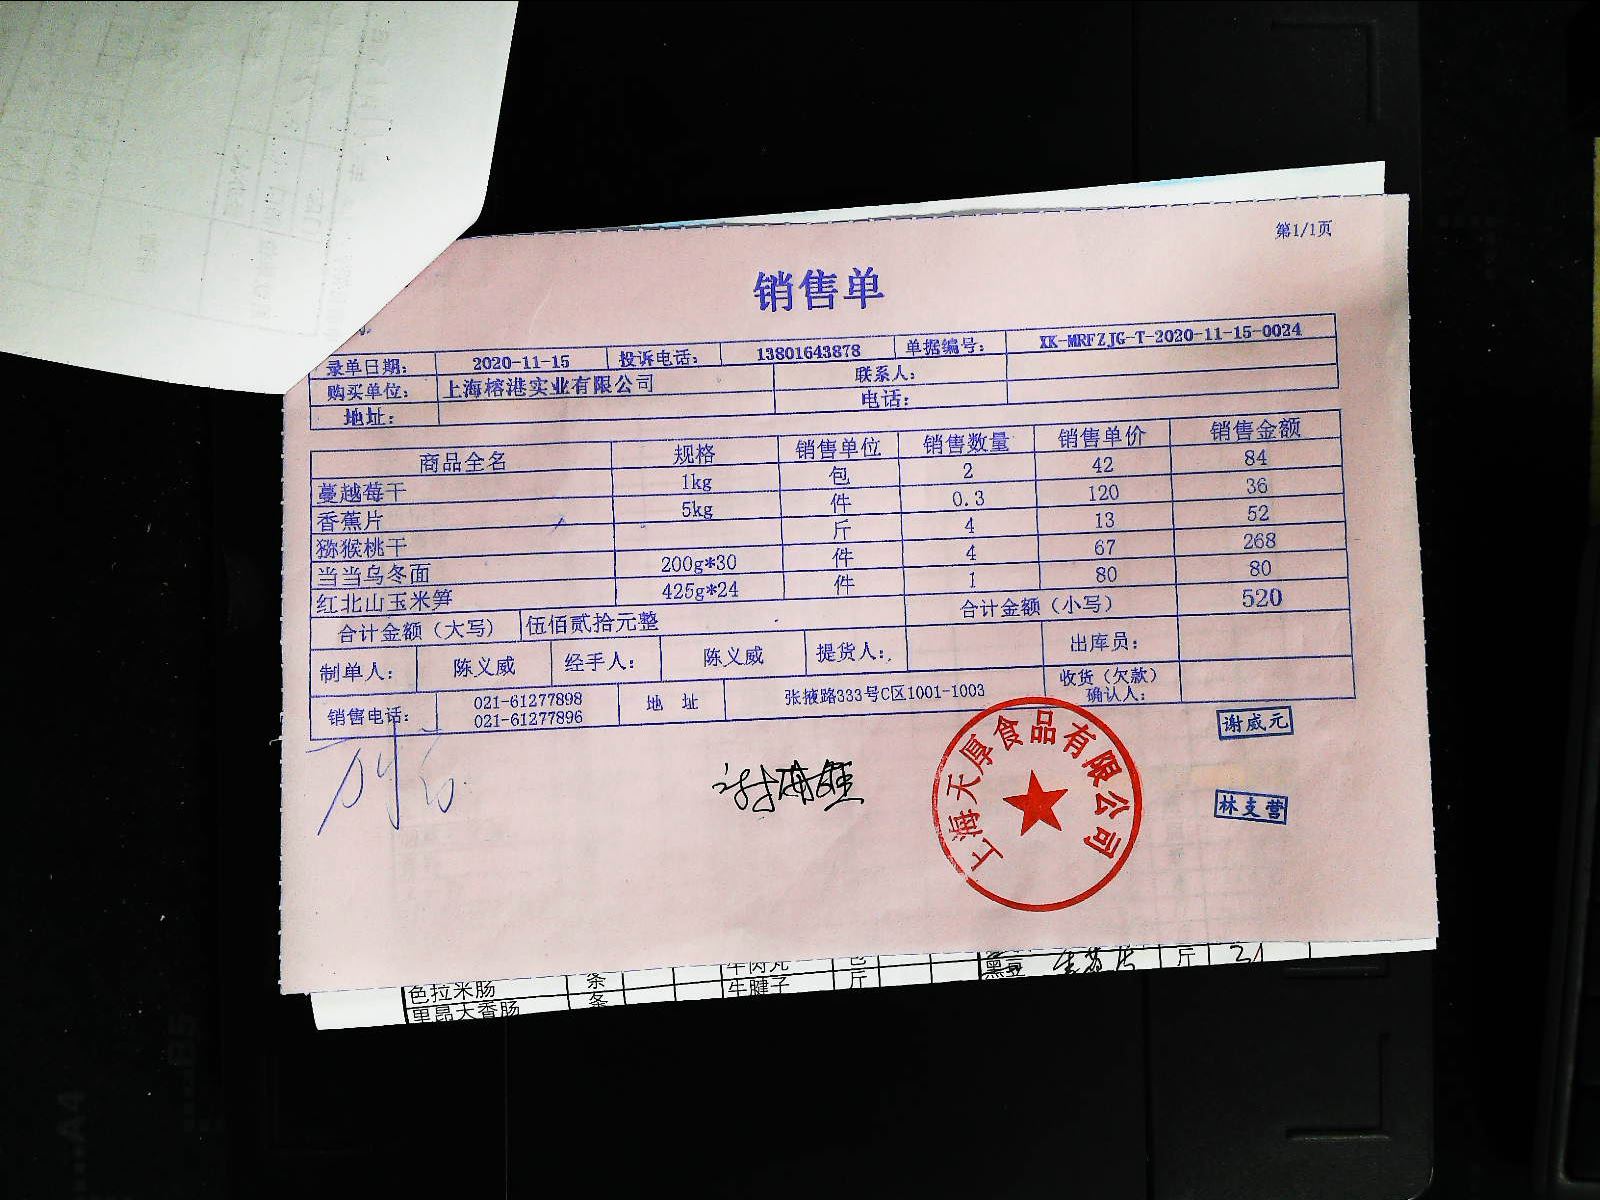 第1/1页
销售单
录单日期: 2020-11-15 投诉电话: 13801643878 单据编号: XK-MRFZJG-T-2020-11-15-0024
购买单位: 上海榕港实业有限公司 联系人:
地址: 电话:
商品全名 规格 销售单位 销售数量 销售单价 销售金额
蔓越莓干 1kg 包 2 42 84
香蕉片 5kg 件 0.3 120 36
猕猴桃干 斤 4 13 52
当当乌冬面 200g*30 件 4 67 268
红北山玉米笋 425g*24 件 1 80 80
合计金额（大写） 伍佰贰拾元整 合计金额（小写） 520
制单人: 陈义威 经手人: 陈义威 提货人: 出库员:
销售电话: 021-61277898 021-61277896 地 址 张掖路333号C区1001-1003 收货（欠款）确认人:
谢威元
上海天厚食品有限公司
林支营
牛肉丸 黑豆 斤
色拉米肠 条 牛腱子 斤
里昂大香肠 条